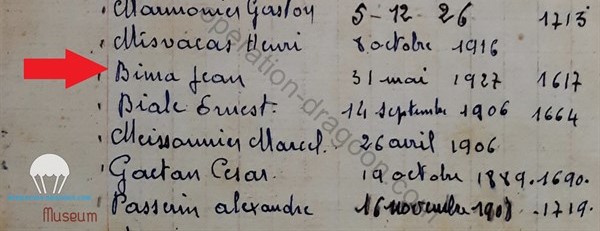 Marmonier Gaston 5-12 26 1713
Misvacas Henri 8 octobre 1916
Bima Jean 31 mai 1927 1617
Biale Ernest. 14 septembre 1906 1664
Meissonnier Marcel. 26 avril 1906
Gaetan Cesar. 19 octobre 1889. 1690.
Passerin alexandre 16 novembre 1908 .1719.
operation-dragoon.com
Museum